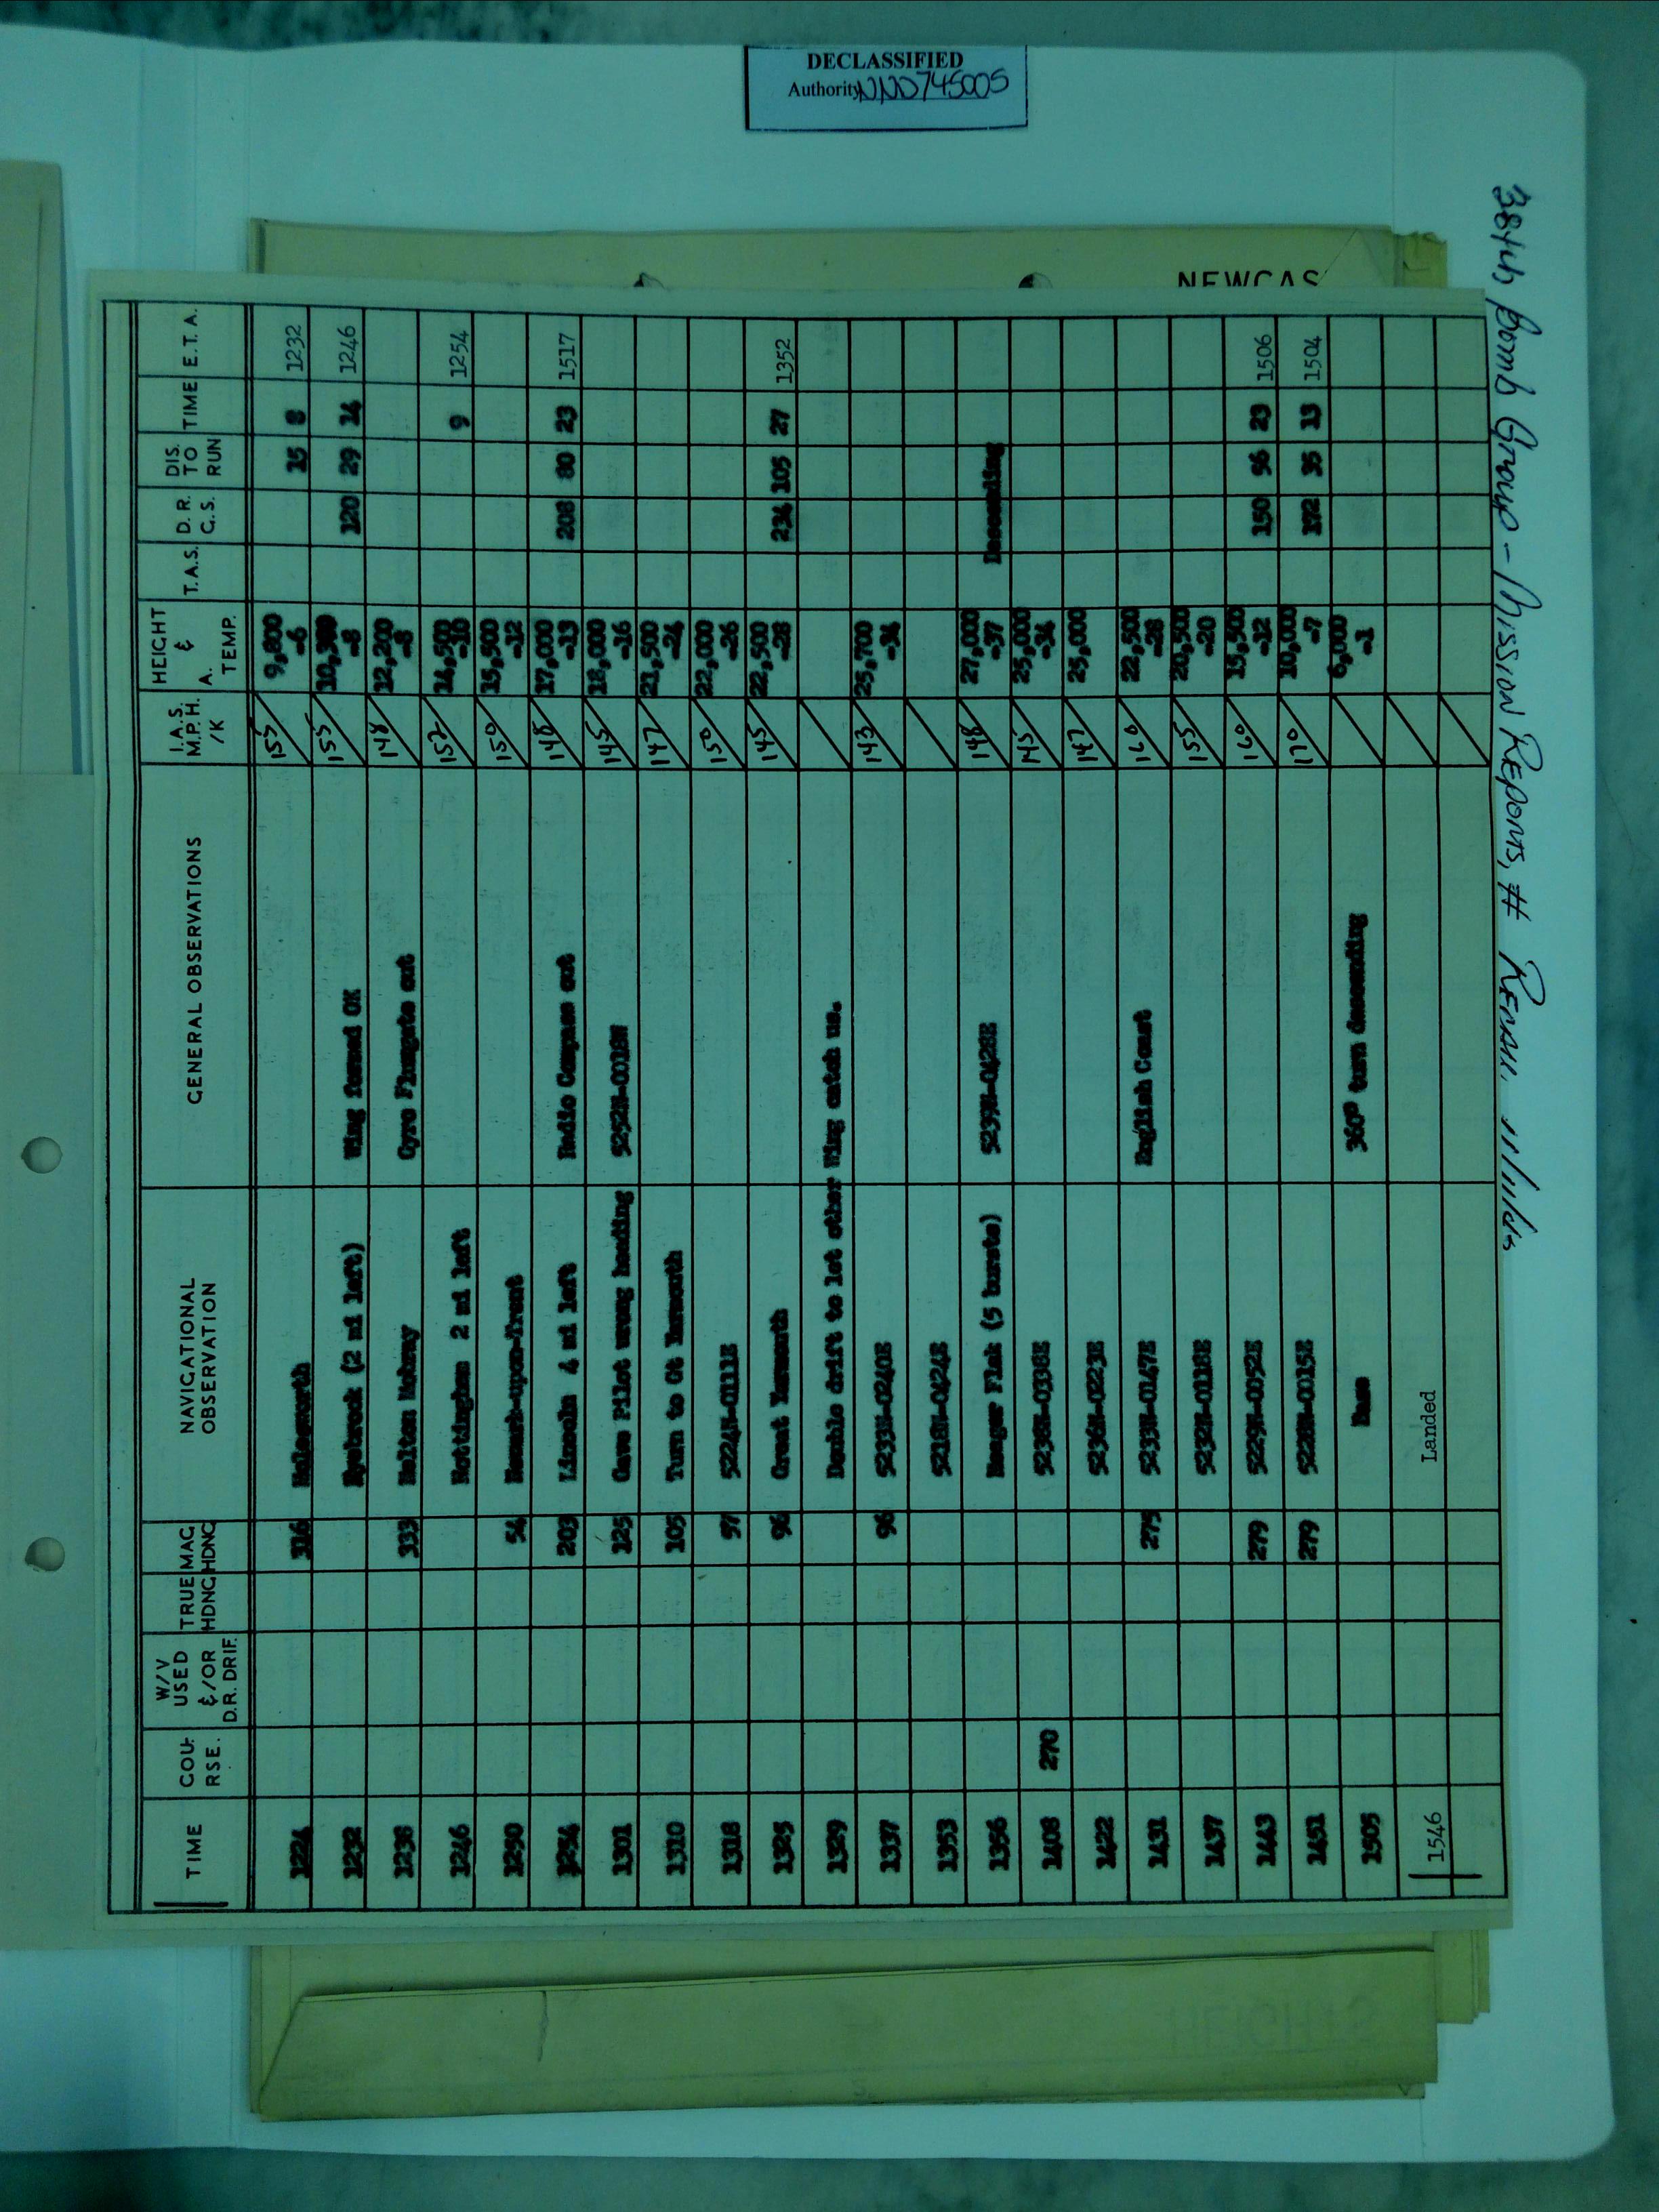 DECLASSIFIED
Authority NND745005
384th Bomb Group - Mission Reports, #
NEWCAS
TIME COU- RSE. W/V USED &/OR D.R. DRIF. TRUE HDNG MAG HDNG NAVIGATIONAL OBSERVATION GENERAL OBSERVATIONS I.A.S. M.P.H. /K HEIGHT & A. TEMP. T.A.S. D.R. G.S. DIS. TO RUN TIME E.T.A.
1224 316 Molesworth 155 9,800 -6 15 8 1232
1232 Ryebrock (2 mi left) Wing formed OK 155 -8 120 29 14 1246
1238 333 Melton Mobray Gyro Fluxgate out 148 12,200 -8
1246 Nottingham 2 mi left 152 14,500 -10 9 1254
1250 54 Newark-upon-Trent 150 15,500 -12
1254 203 Lincoln 4 mi left Radio Compass out 148 17,000 -13 208 80 23 1517
1301 125 Gave Pilot wrong heading 5252N-0018W 145 18,000 -16
1310 105 Turn to Gt Yarmouth 147 21,500 -24
1318 97 5224N-0111E 150 22,000 -26
1325 96 Great Yarmouth 145 22,500 -28 234 105 27 1352
1329 Double drift to let other Wing catch us.
1337 96 5233N-0240E 143 25,700 -34
1353 5218N-0424E
1356 Meager Flak (5 bursts) 5239N-0428E 148 27,000 -37 Descending
1408 270 5238N-0338E 145 25,000 -34
1422 5236N-0223E 147 25,000
1431 275 5233N-0147E English Coast 160 22,500 -28
1437 5232N-0118E 155 20,500 -20
1443 279 5229N-0052E 160 15,500 -12 150 56 23 1506
1451 279 5228N-0015E 170 10,000 -7 192 35 13 1504
1505 Base 360° turn descending 6,000 -1
1546 Landed